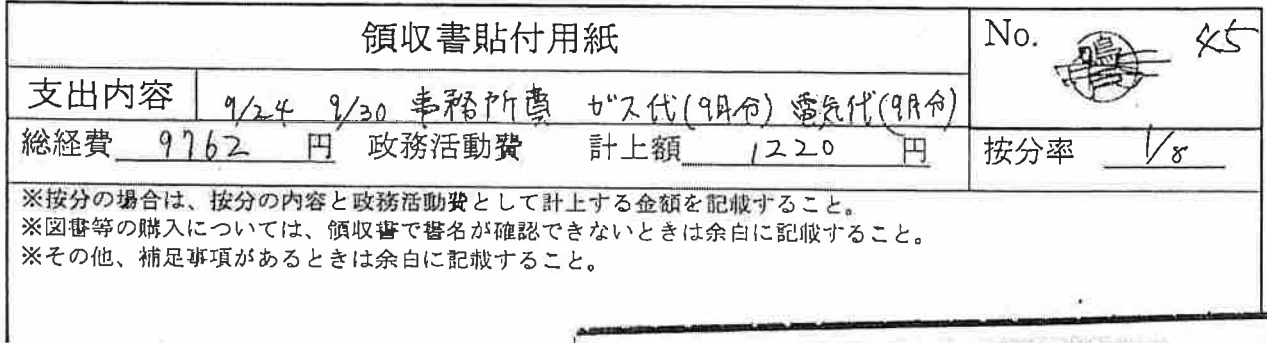 領収書貼付用紙
No. 45
支出内容 9/24 9/30 事務所費 ガス代(9月分) 電気代(9月分)
総経費 9762 円 政務活動費 計上額 1220 円 按分率 1/8
※按分の場合は、按分の内容と政務活動費として計上する金額を記載すること。
※図書等の購入については、領収書で書名が確認できないときは余白に記載すること。
※その他、補足事項があるときは余白に記載すること。